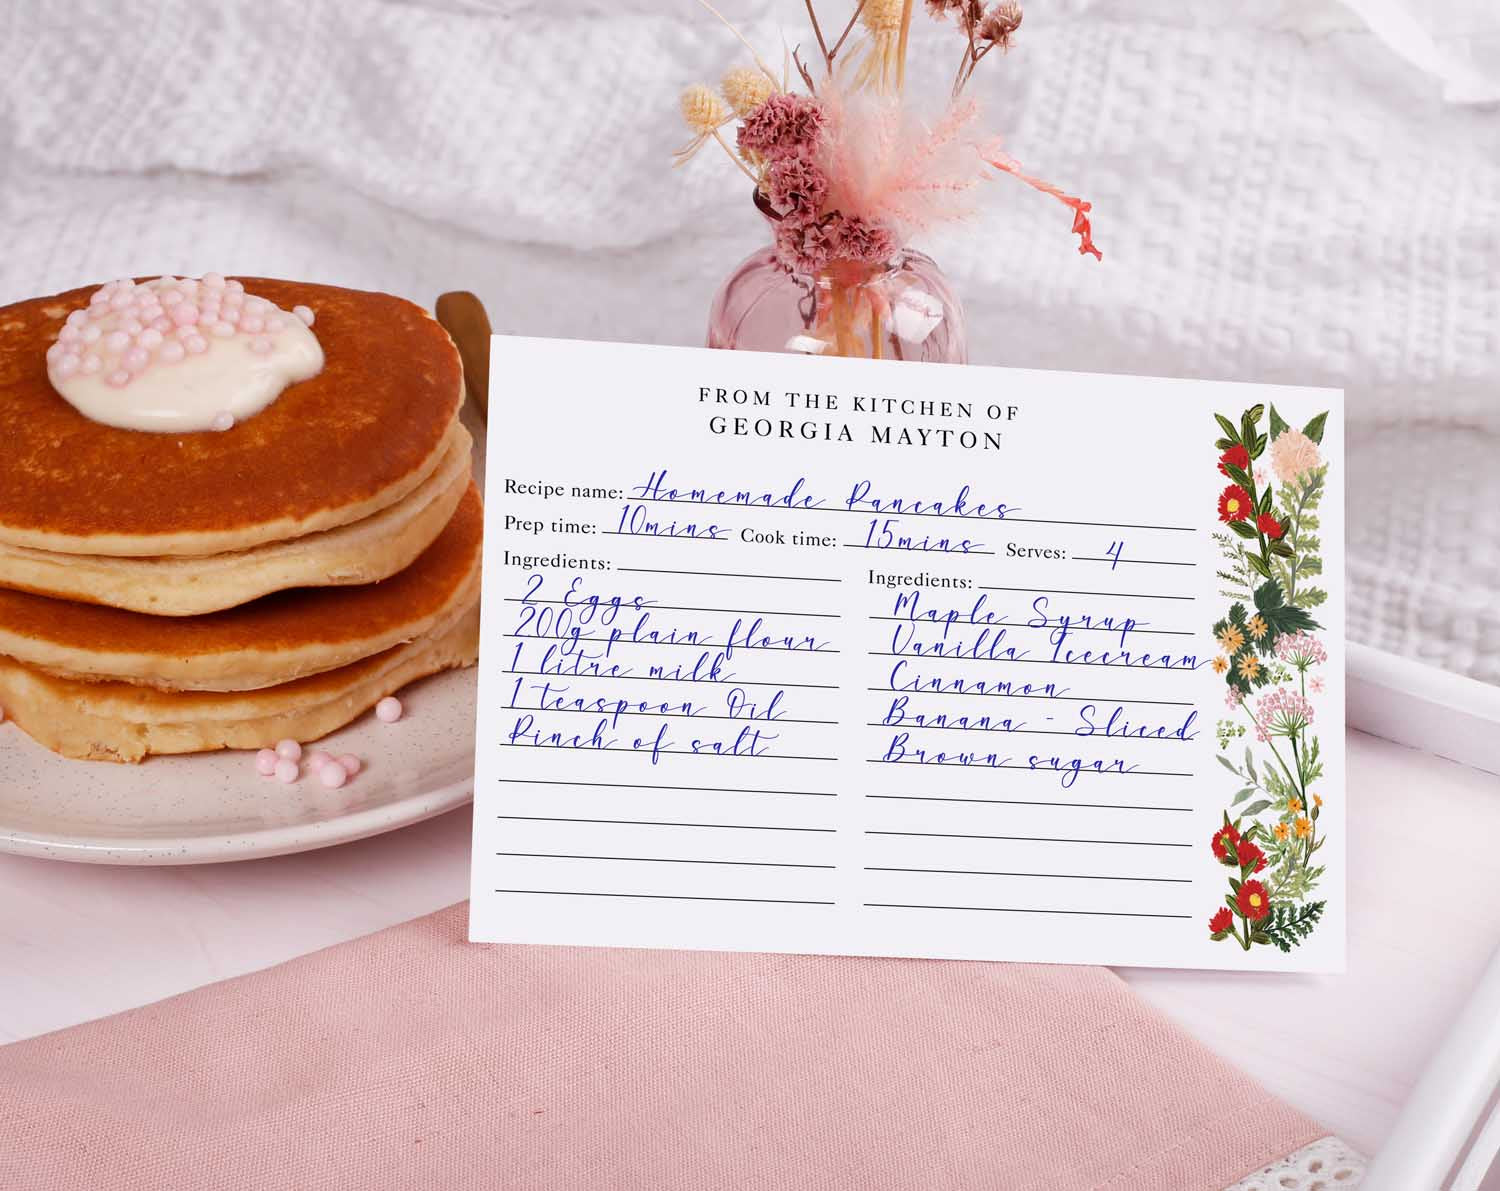 FROM THE KITCHEN OF
GEORGIA MAYTON
Recipe name: Homemade Pancakes
Prep time: 10mins Cook time: 15mins Serves: 4
Ingredients:
2 Eggs
200g plain flour
1 litre milk
1 teaspoon Oil
Pinch of salt
Ingredients:
Maple Syrup
Vanilla Icecream
Cinnamon
Banana - Sliced
Brown sugar